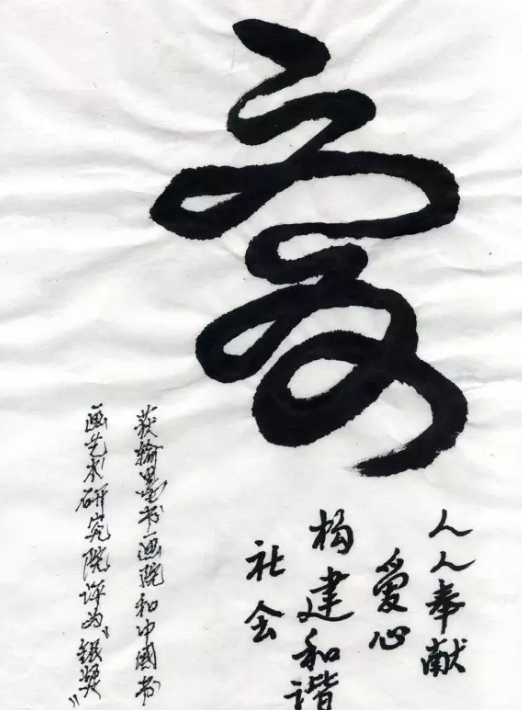 愛
人人奉献
愛心
构建和谐
社会
获翰墨书画院和中國书
画艺术研究院评为“银奖”